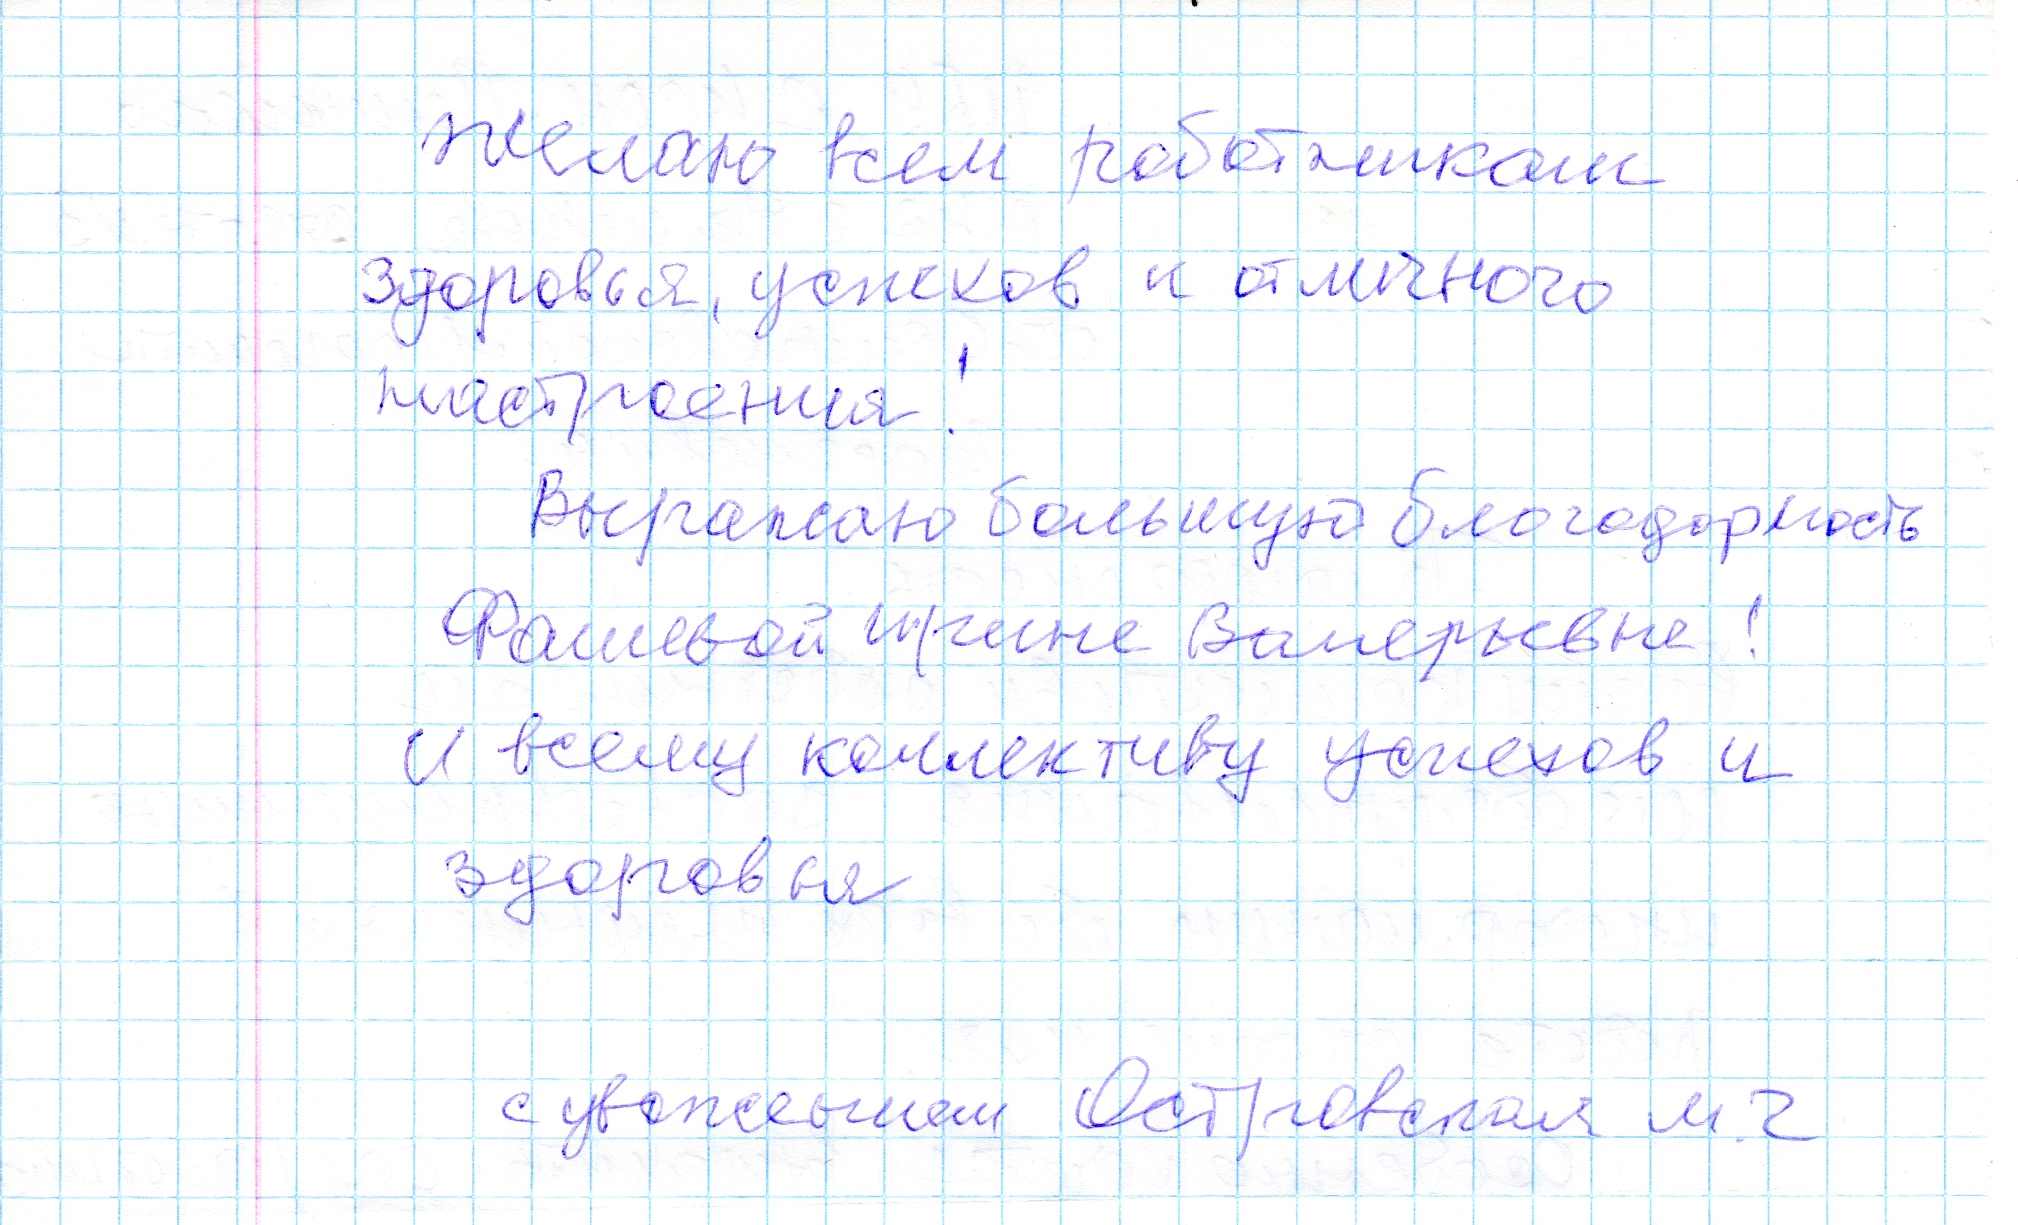 Желаю всем работникам
здоровья, успехов и отличного
настроения!
Выражаю большую благодарность
Ирине Валерьевне!
и всему коллективу успехов и
здоровья
с уважением Островская М.Г